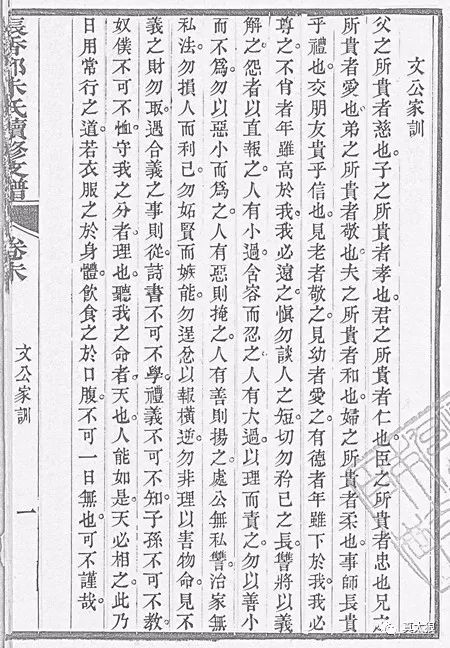 文公家訓
父之所貴者慈也。子之所貴者孝也。君之所貴者仁也。臣之所貴者忠也。兄之
所貴者愛也。弟之所貴者敬也。夫之所貴者和也。婦之所貴者柔也。事師長貴
乎禮也。交朋友貴乎信也。見老者敬之。見幼者愛之。有德者年雖下於我。我必
尊之。不肖者年雖高於我。我必遠之。慎勿談人之短。切勿矜己之長。讐將以義
解之。怨者以直報之。人有小過。含容而忍之。人有大過。以理而責之。勿以善小
而不為。勿以惡小而為之。人有惡則掩之。人有善則揚之。處公無私讐。治家無
私法。勿損人而利己。勿妬賢而嫉能。勿逞忿以報橫逆。勿非理以害物命。見不
義之財勿取。遇合義之事則從。詩書不可不學。禮義不可不知。子孫不可不教。
奴僕不可不恤。守我之分者理也。聽我之命者天也。人能如是。天必相之。此乃
日用常行之道。若衣服之於身體。飲食之於口腹。不可一日無也。可不謹哉。
朱氏續修支譜
卷末
文公家訓
一